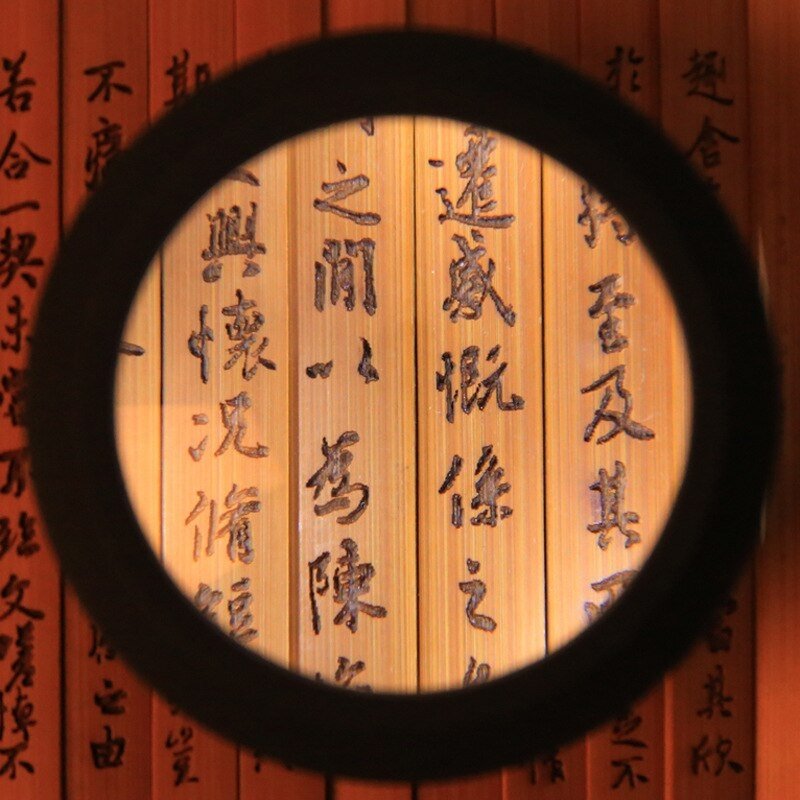 趣舍
其欣
於
不
至及其
遷感慨係之
之間以為陳
興懷況脩短
期
豈
不痛
之由
若合一契未嘗不臨文嗟悼不